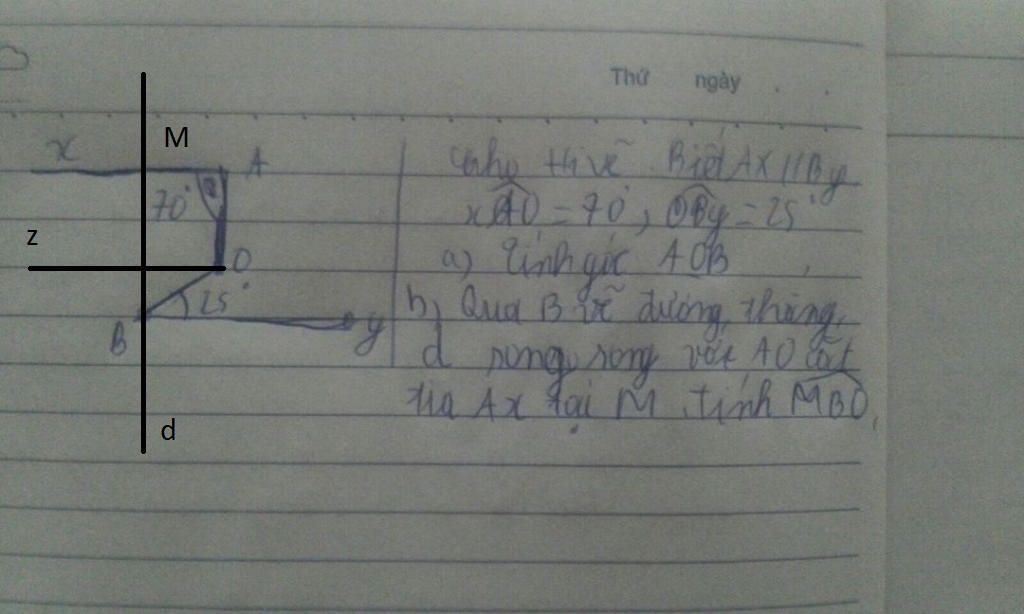 Thứ ngày
x
M
A
70°
z
O
25°
B
y
d
cho hì vẽ Biết AX // By
xAO = 70°, OBy = 25°
a) Tính góc AOB
b) Qua B vẽ đường thẳng
d song song với AO cắt
tia Ax tại M. tính MBO